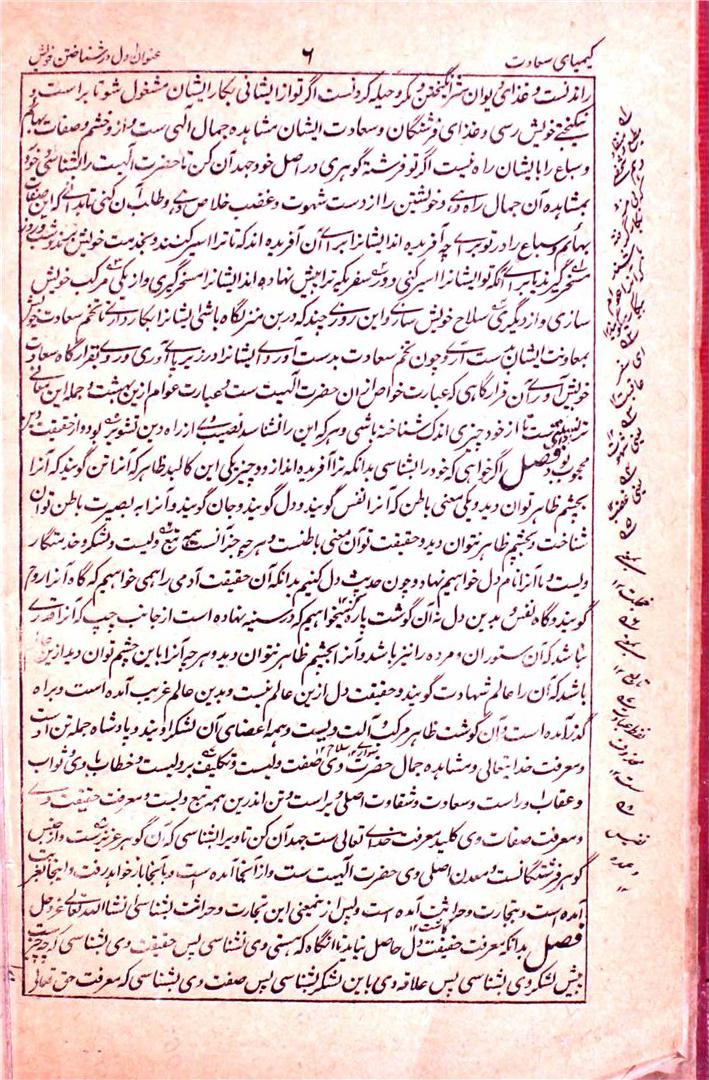 کیمیای سعادت
۶
عنوان اول در شناختن خویش
راندنست و غذای دیوان شر انگیختن و مکر و حیله کردنست اگر تو از ایشانی بکار ایشان مشغول شو تا براست و
نیکبختی خویش رسی و غذای فرشتگان و سعادت ایشان مشاهده جمال الهی ست و آز و خشم و صفات بهائم
و سباع را بایشان راه نیست اگر تو فرشته گوهری در اصل خود جهد آن کن تا حضرت الهیت را بشناسی و خود را
بمشاهده آن جمال راه دهی و خویشتن را از دست شهوت و غضب خلاص دهی و طلب آن کنی تا بدانی که این صفات
بهائم و سباع را در تو برای چه آفریده اند ایشانرا برای آن آفریده اند که تا ترا اسیر کنند و بخدمت خویش برند و شب و روز
مسخر گیرند یا برای آنکه تو ایشانرا اسیر کنی و در سفریکه ترا پیش نهاده اند ایشانرا مسخر گیری و از یکی مرکب خویش
سازی و از دیگری سلاح خویش سازی و این روزی چند که درین منزلگاه باشی ایشانرا بکار داری تا تخم سعادت خویش
بمعاونت ایشان بدست آری و چون تخم سعادت بدست آوردی ایشانرا در زیر پای آوری و روی بقرارگاه سعادت
خویش آوری آن قرارگاهی که عبارت خواص از ان حضرت الهیت ست و عبارت عوام ازین بهشت و جمله این معانی
ترا دانستنی ست تا از خود چیزی اندک شناخته باشی و هر که این را نشناسد نصیب وی از راه دین تشویر بود و از حقیقت دین
محجوب بود فصل اگر خواهی که خود را بشناسی بدانکه ترا آفریده اند از دو چیز یکی این کالبد ظاهر که آنرا تن گویند که آنرا
بچشم ظاهر توان دید و یکی معنی باطن که آنرا نفس گویند و دل گویند و جان گویند و آنرا به بصیرت باطن توان
شناخت و بچشم ظاهر نتوان دید و حقیقت تو آن معنی باطنست و هر چه جز آنست همه تبع ویست و لشکر و خدمتگار
ویست و ما آنرا نام دل خواهیم نهاد و چون حدیث دل کنیم بدانکه آن حقیقت آدمی را همی خواهیم که گاه آنرا روح
گویند و گاه نفس و بدین دل نه آن گوشت پاره میخواهیم که در سینه نهاده است از جانب چپ که آنرا قدری
نباشد که آن ستوران و مرده را نیز باشد و آنرا بچشم ظاهر نتوان دید و هر چه آنرا باین چشم توان دید ازین عالم
باشد که آن را عالم شهادت گویند و حقیقت دل ازین عالم نیست و بدین عالم غریب آمده است و براه
گذر آمده است و آن گوشت ظاهر مرکب و آلت ویست و همه اعضای تن لشکر اویند و پادشاه جمله تن اوست
و معرفت خدایتعالی و مشاهده جمال حضرت وی صفت ویست و تکلیف بر ویست و خطاب با وی و ثواب
و عقاب او راست و سعادت و شقاوت اصلی ویراست و تن اندرین همه تبع ویست و معرفت حقیقت وی
و معرفت صفات وی کلید معرفت خدای تعالی ست جهد آن کن تا ویرا بشناسی که آن گوهر عزیزست و از جنس
گوهر فرشتگانست و معدن اصلی وی حضرت الهیت ست و از آنجا آمده است و بآنجا باز خواهد رفت و اینجا بغربت
آمده است و بتجارت و حراثت آمده است و پس ازین معنی این تجارت و حراثت بشناسی انشاءالله تعالی عز و جل
فصل بدانکه معرفت حقیقت دل حاصل نیاید تا آنگاه که هستی وی نشناسی پس حقیقت وی بشناسی که چه چیزست
پیش لشکر وی بشناسی پس علاقه وی باین لشکر بشناسی پس صفت وی بشناسی که معرفت حق تعالی